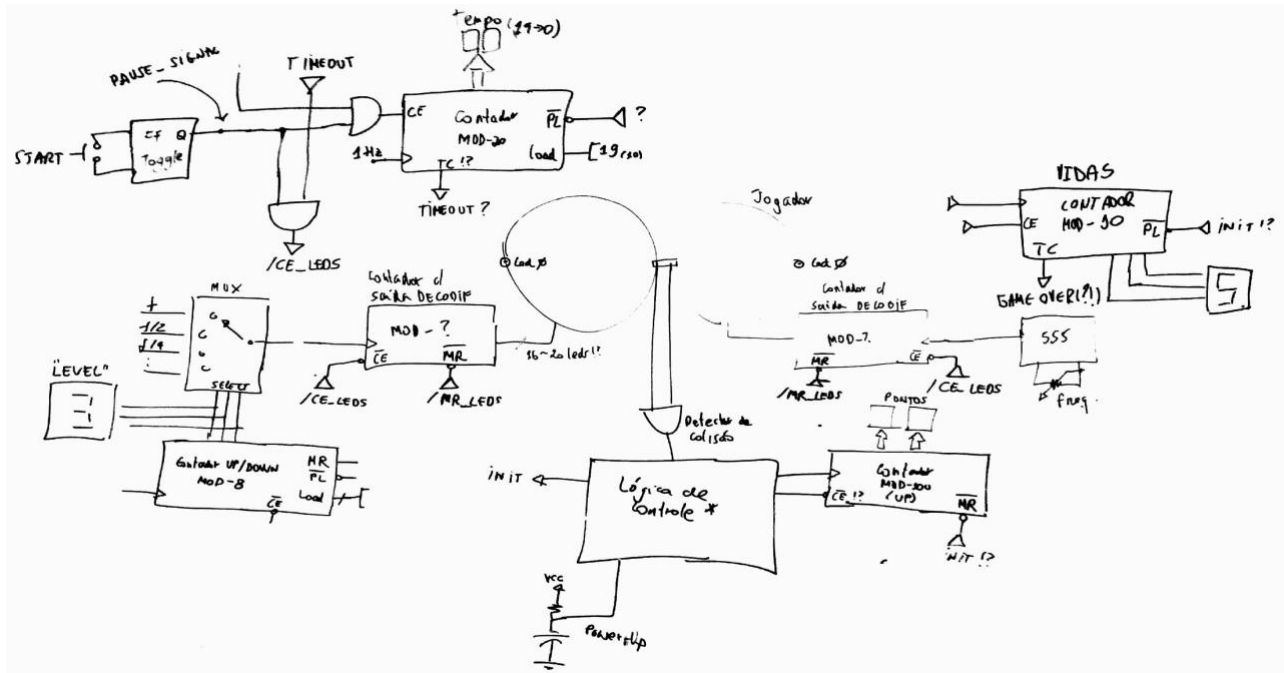 Tempo (19→0)
PAUSE_SIGNAL
TIMEOUT
START
FF Q
Toggle
CE
Contador
MOD-20
PL
?
1Hz
TC !?
Load
19(10)
TIMEOUT ?
/CE_LEDS
Jogador
VIDAS
CONTADOR
MOD-10
CE
PL
INIT !?
TC
GAME OVER(?!)
5
Led Ø
Led Ø
MUX
1
1/2
1/4
SELECT
Contador c/
Saída DECODIF
MOD-?
CE
MR
16~20 leds !?
/CE_LEDS
/MR_LEDS
Contador c/
Saída DECODIF
MOD-?
MR
CE
/MR_LEDS
/CE_LEDS
555
freq.
"LEVEL"
Contador UP/DOWN
MOD-8
MR
PL
Load
CE
Detector de
Colisão
INIT
Lógica de
Controle *
PONTOS
Contador
MOD-100
(UP)
CE !?
MR
INIT !?
Vcc
Power-Up